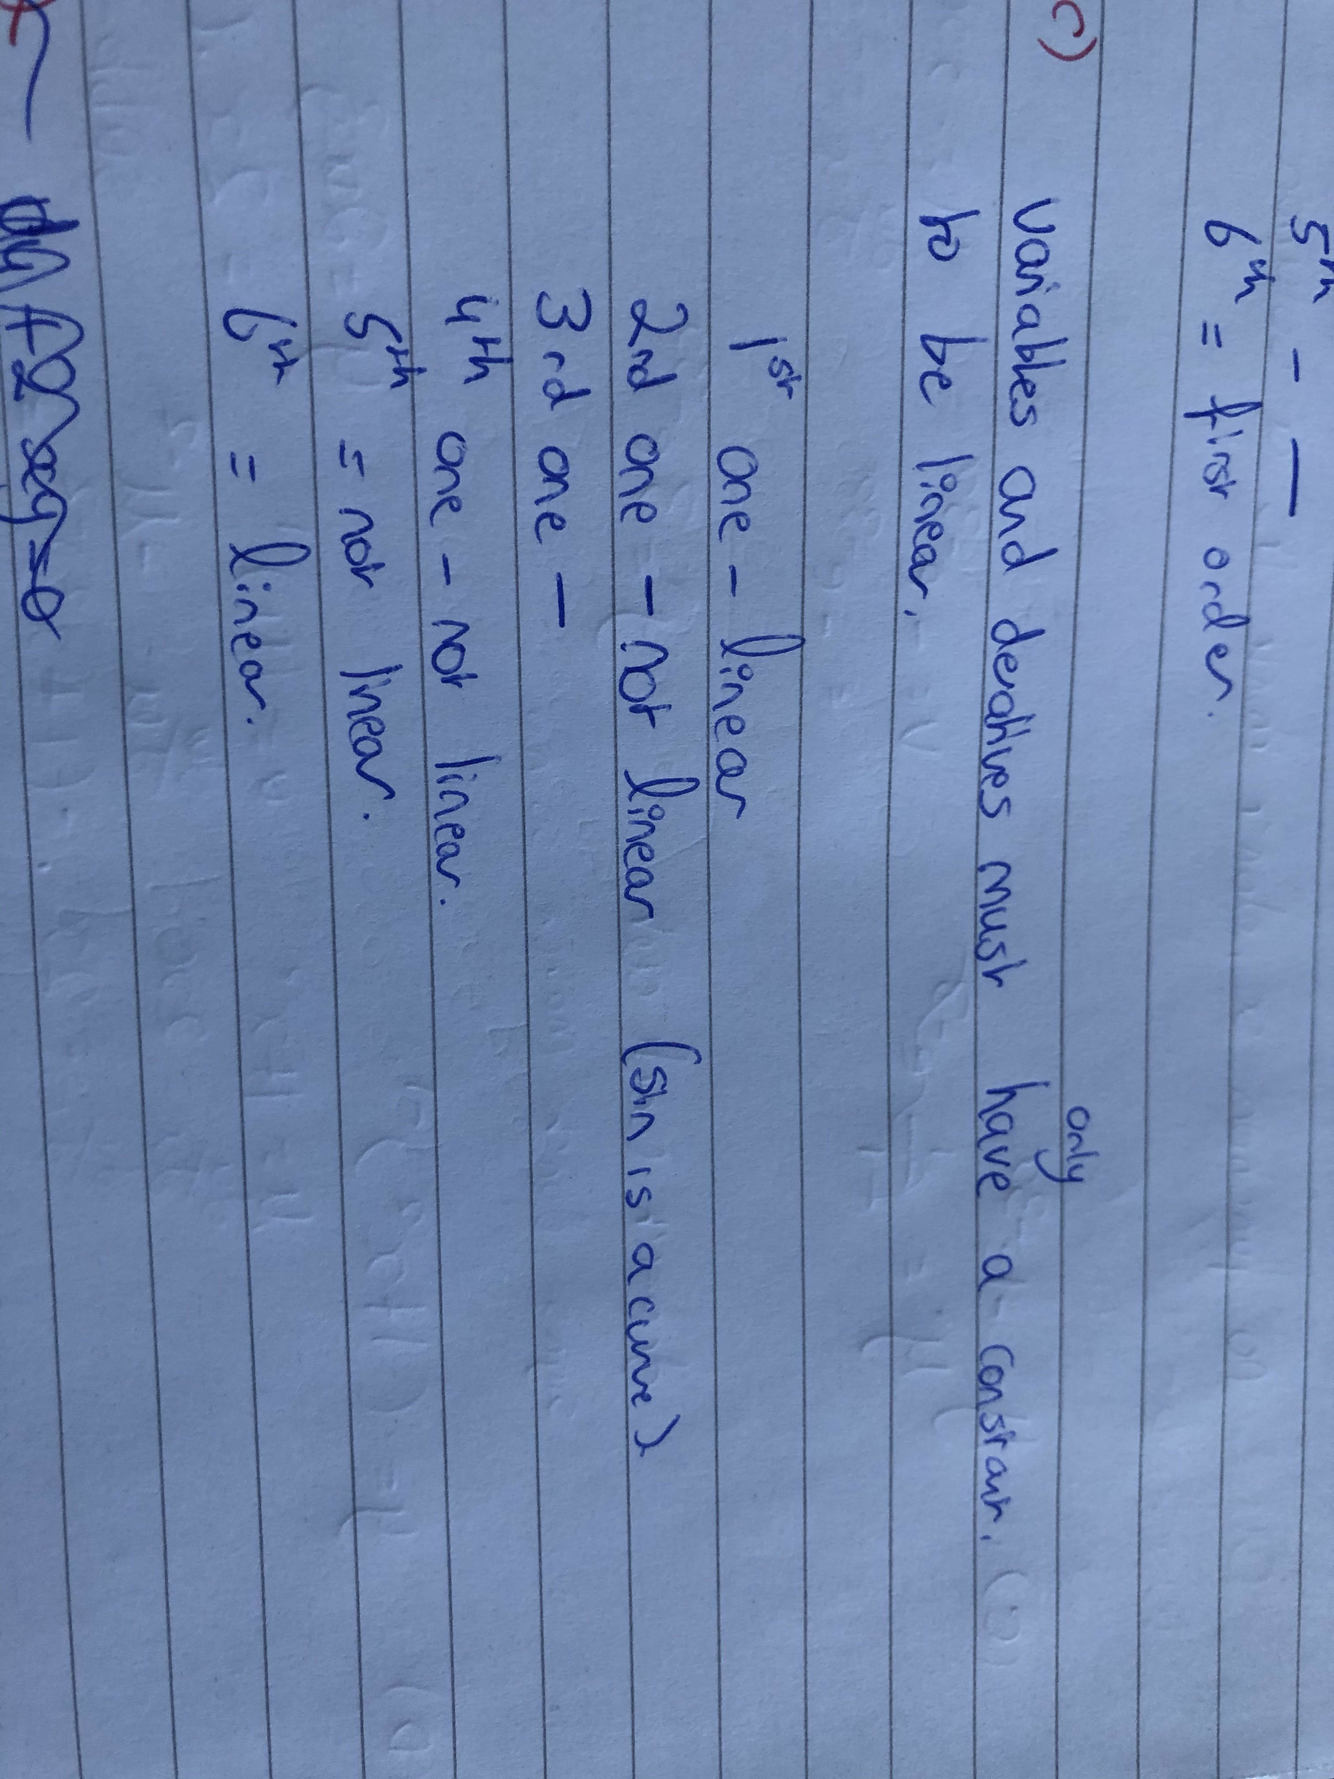 5th - —
6th = first order.
c)
Variables and deratives must only have a constant.
to be linear.
1st one - linear
2nd one - not linear (sin is a curve)
3rd one -
4th one - not linear.
5th = not linear.
6th = linear.